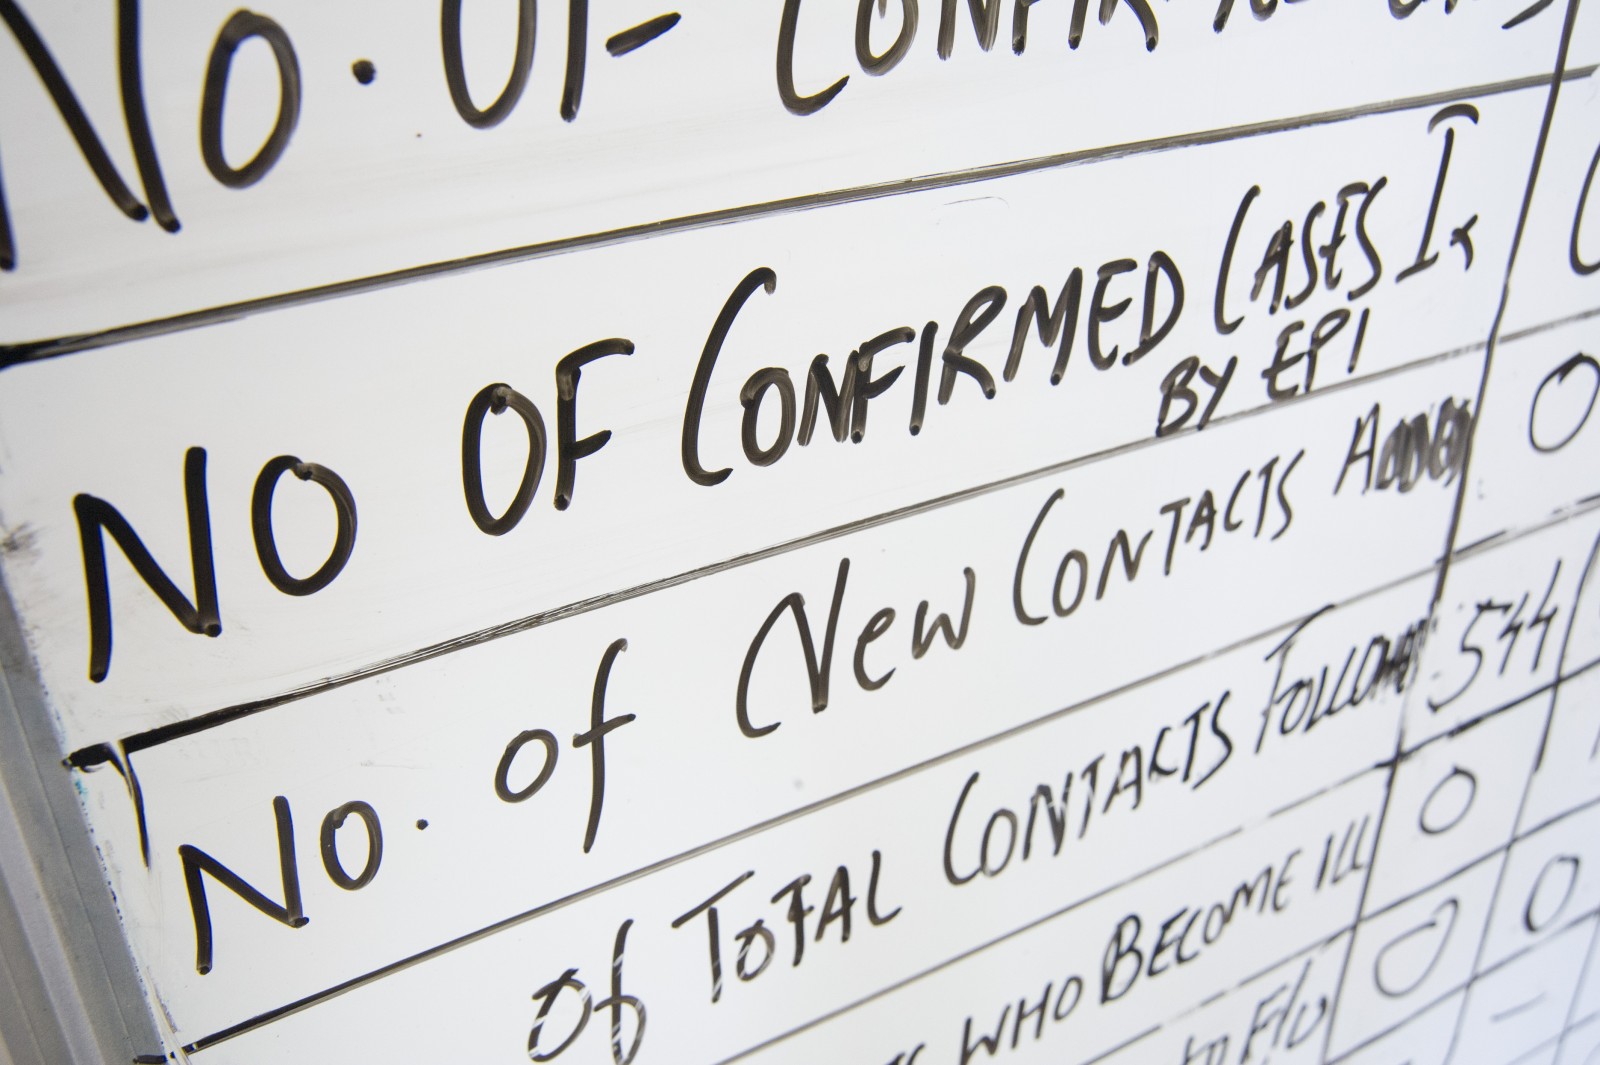 No. OF CONFIR
NO OF CONFIRMED CASES Ix
BY EPI
0
No. of New CONTACTS ADDED
544
of TOTAL CONTACTS FOLLOWED
0
WHO BECOME ILL
0
0
to Flu